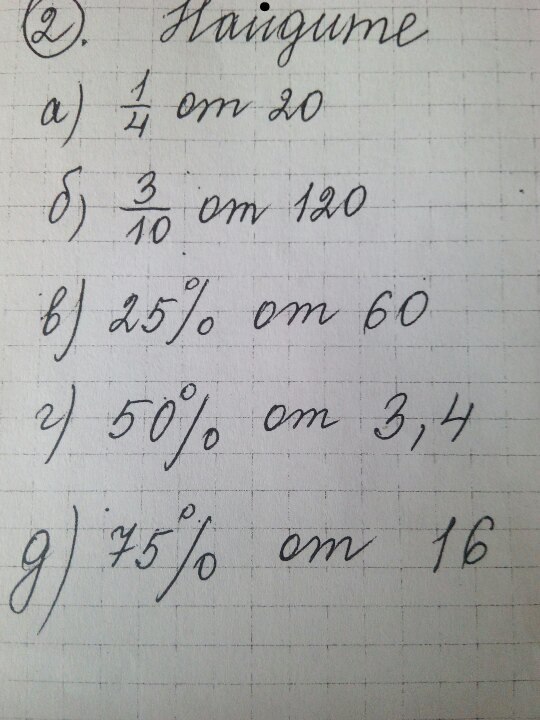 2. Найдите
а) 1/4 от 20
б) 3/10 от 120
в) 25% от 60
г) 50% от 3,4
д) 75% от 16